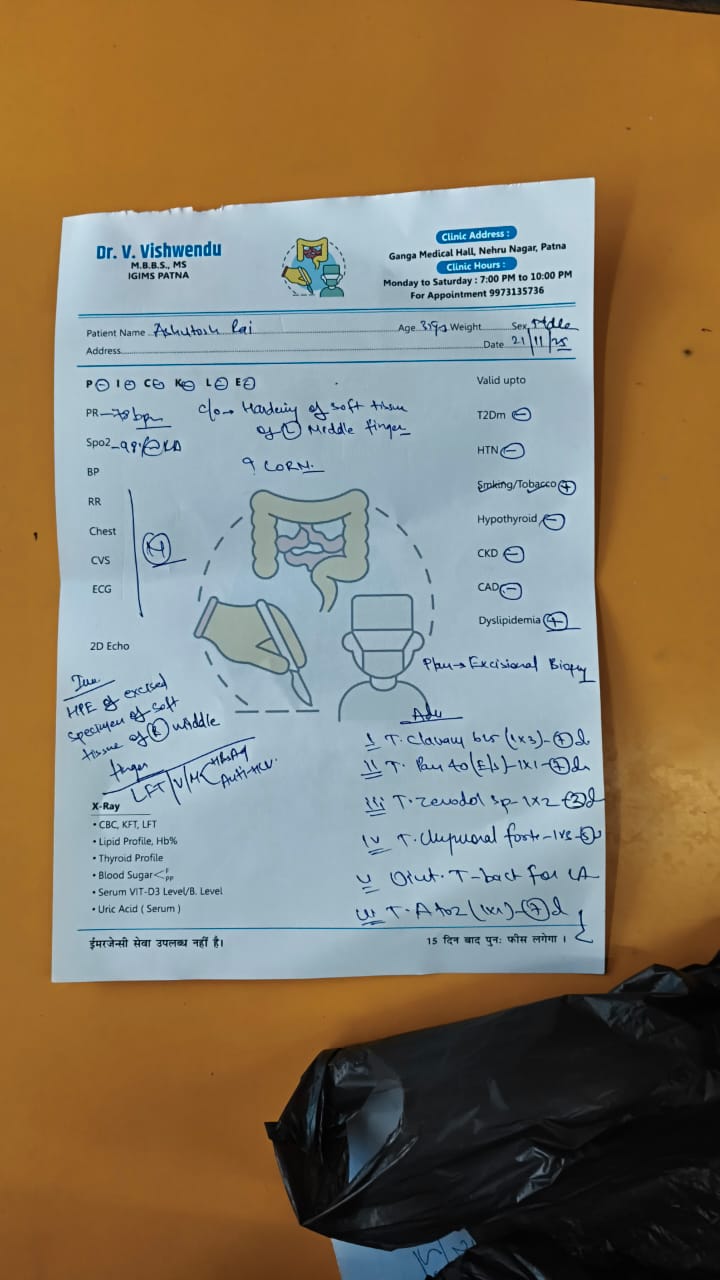 Dr. V. Vishwendu
M.B.B.S., MS
IGIMS PATNA
Clinic Address :
Ganga Medical Hall, Nehru Nagar, Patna
Clinic Hours :
Monday to Saturday : 7:00 PM to 10:00 PM
For Appointment 9973135736
Patient Name Ashutosh Rai Age Weight Sex Male
Address Date 21/11/25
P⊖ I⊖ C⊖ K⊖ L⊖ E⊖
Valid upto
PR - 78 bpm
c/o → Hardening of soft tissue
of Middle finger
T2Dm ⊖
Spo2 - 98%
HTN ⊖
BP
? CORN.
RR
Smking/Tobacco ⊕
Chest
Hypothyroid ⊖
CVS
CKD ⊖
ECG
CAD ⊖
Dyslipidemia ⊕
2D Echo
Plan → Excisional Biopsy
HPE of excised
specimen of soft
tissue of middle
finger
LFT/V/M HBsAg
Anti-HCV
X-Ray
• CBC, KFT, LFT
• Lipid Profile, Hb%
• Thyroid Profile
• Blood Sugar < F PP
• Serum VIT-D3 Level/B. Level
• Uric Acid ( Serum )
Adv
i T. Clavam 625 (1x3) - (7) d
ii T. Pan 40 (E/S) - 1x1 - (7) d
iii T. Zerodol sp - 1x2 - d
iv T. forte - 1x3 - (5) d
v Oint. T-bact for LA
vi T. A to Z (1x1) - (7) d
ईमरजेन्सी सेवा उपलब्ध नहीं है।
15 दिन बाद पुनः फीस लगेगा ।